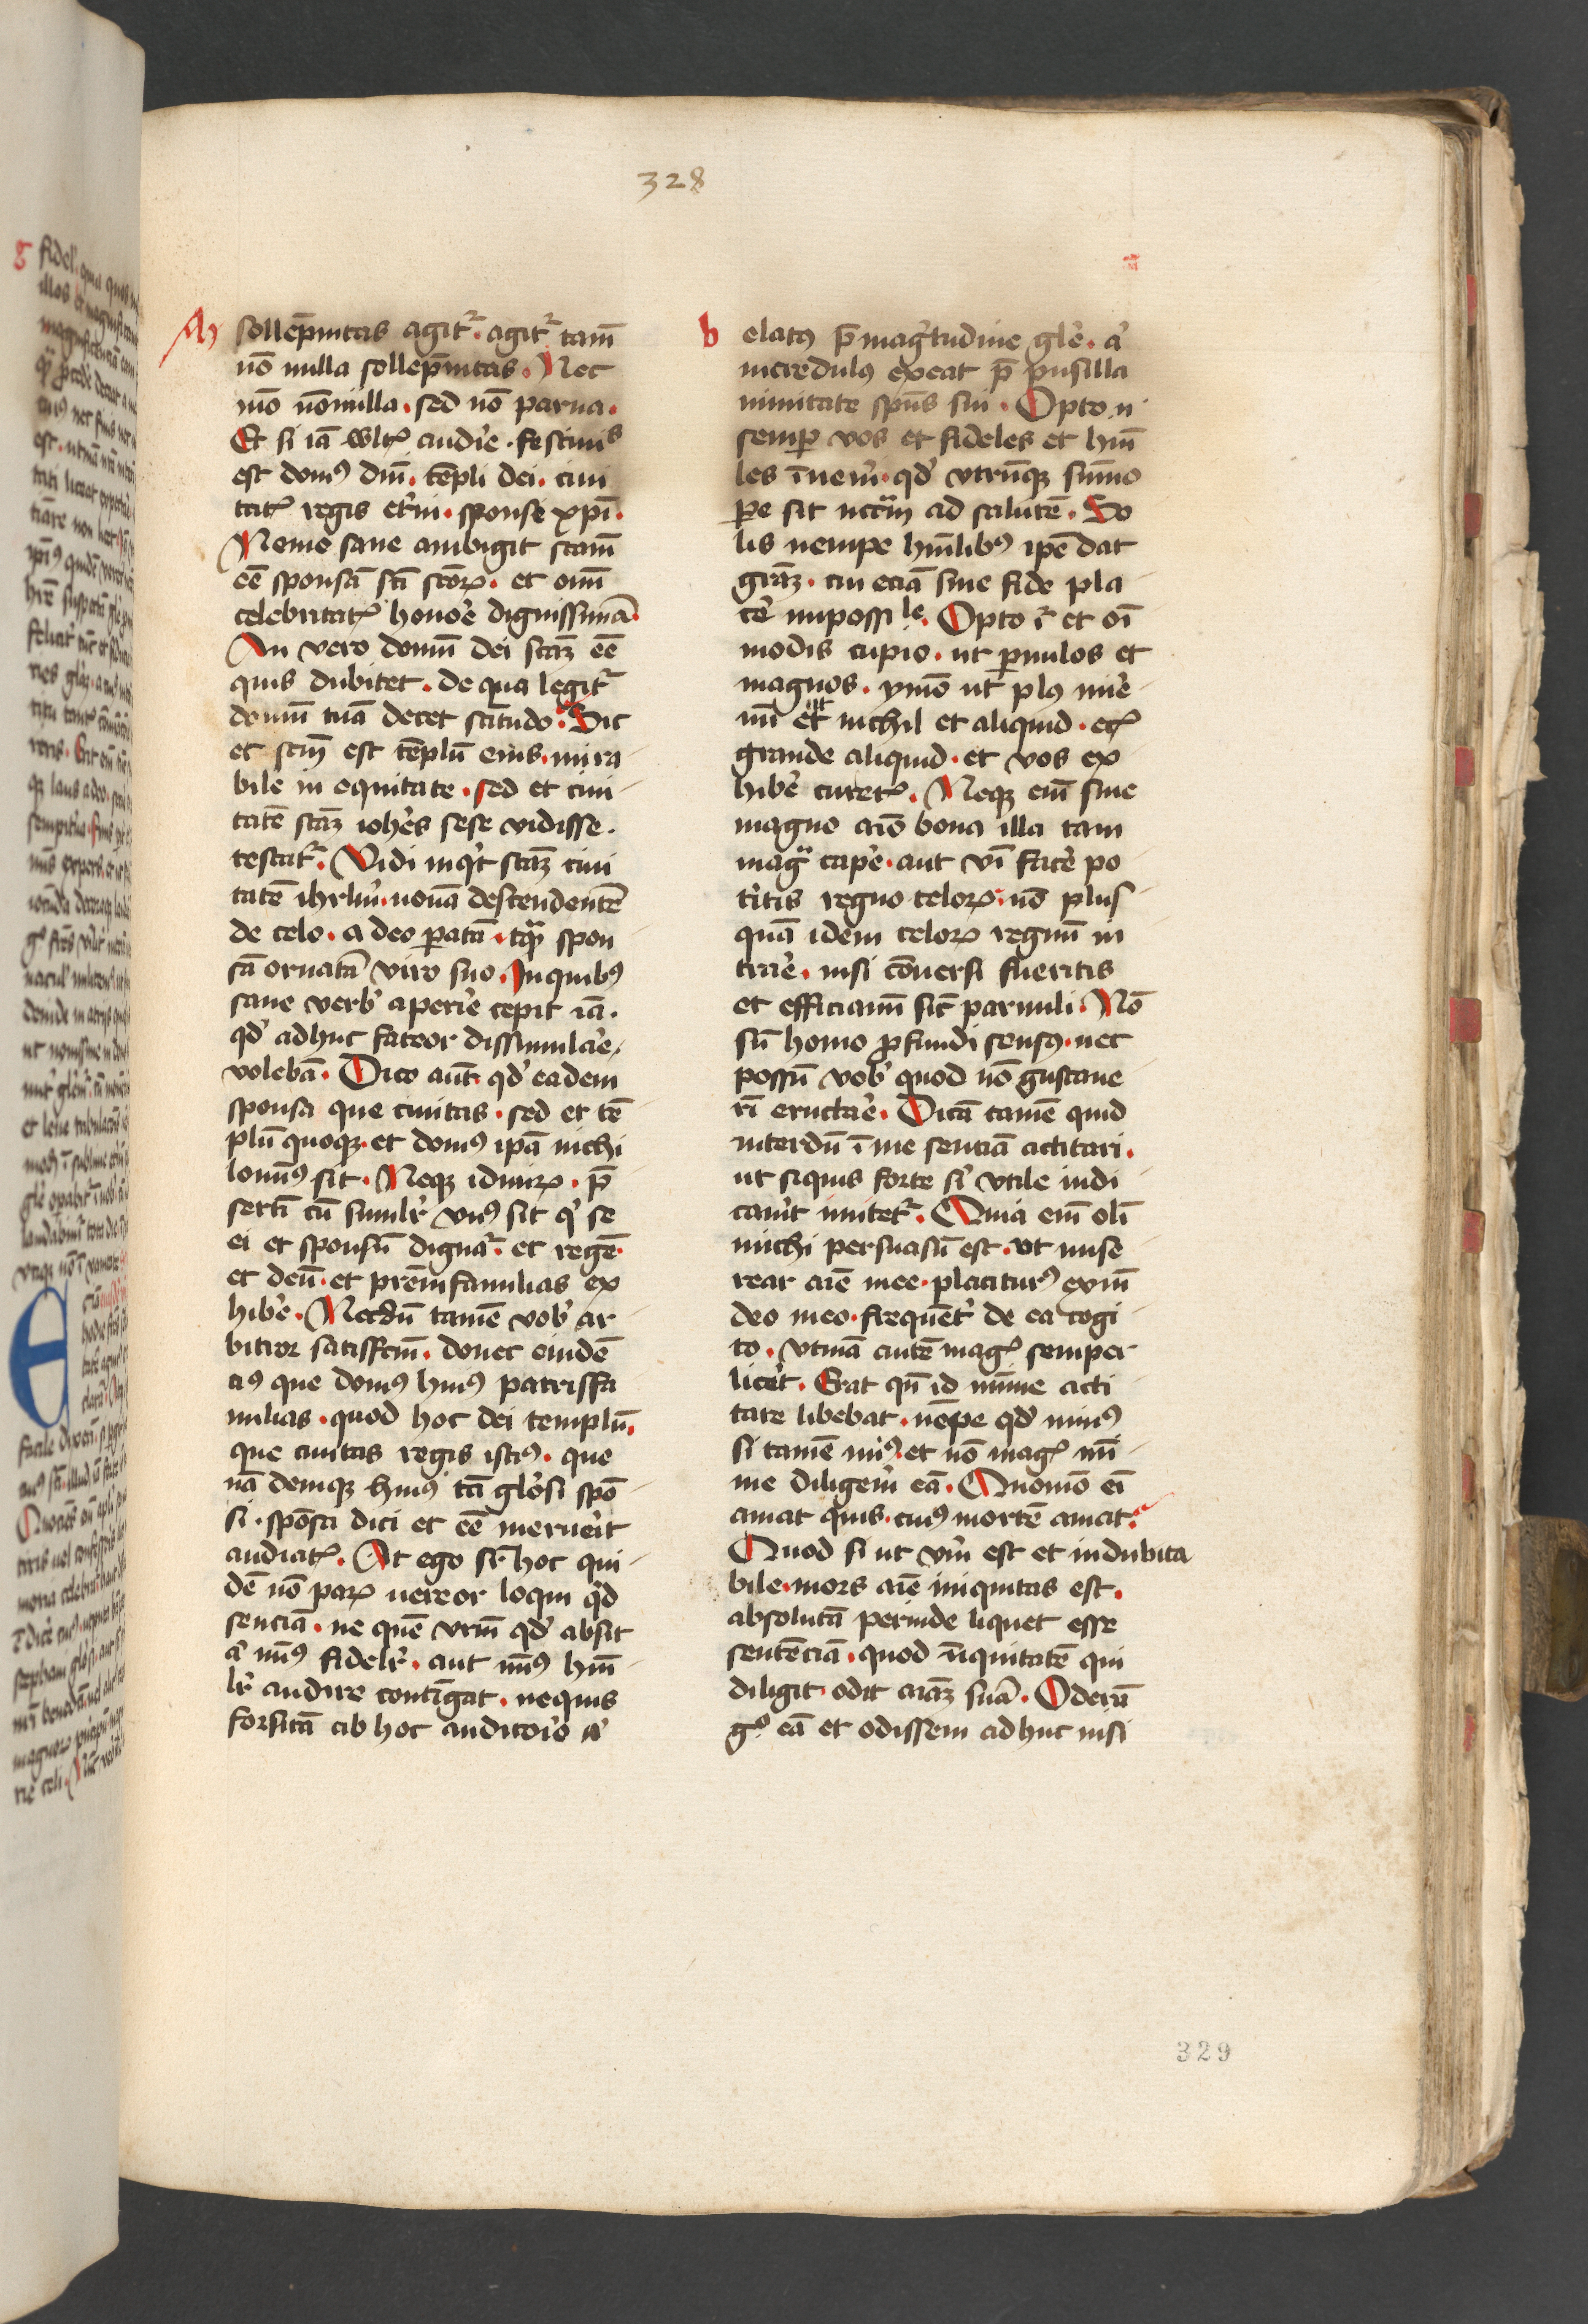 328
A
sollēpnitas agit᷑. agit᷑ tam̄
nō nulla sollēpnitas. Nec
mō nōnulla. sed nō parua.
Et si iā wltꝭ audire. festiuis
est domꝰ dn̄i. tēpli dei. ciui
tatꝭ regis et̾ni. sponse xp̄i.
Nemo sane ambigit sc̄am
eē sponsā sc̄i sc̄oꝝ. et om̄i
celebritatꝭ honore dignissimā.
An vero domū dei sc̄aꝫ eē
quis dubitet. de qua legit᷑
domū tuā decet sc̄itudo. Sic
et sc̄m est tēplū eius. mira
bile in equitate. sed et ciui
tatē sc̄aꝫ ioh̄es sese vidisse.
testat᷑. Vidi inqͥt sc̄aꝫ ciui
tatē ihrl̄m. nouā descendentē
de celo. a deo ꝑatā. tqͣꝫ spon
sā ornatā viro suo. In quibꝰ
sane verbꝭ aperire cepit iā.
qd̾ adhuc fateor dissimulare
volebā. Dico aūt qd̾ eadem
sponsa que ciuitas. sed et tē
plū quoqꝫ. et domꝰ ipā nichi
lominꝰ sit. Neqꝫ id miꝝ. p̄
sertī cū simil̾r vnꝰ sit qͥ se
ei et sponsū dignat᷑. et regē.
et deū. et prēmfamilias ex
hibe̾. Necdū tamē vob̾ ar
bitror satisfcm̄. donec euidē
ciꝰ que domꝰ huiꝰ patrisfa
milias. quod hoc dei templū.
que ciuitas regis istiꝰ. que
nā deniqꝫ huiꝰ tā glo̾si spō
si. spōsa dici et eē meruerit
audiatꝭ. At ego fr̄ hoc qui
dē nō paꝝ uereor loqui qd̾
senciā. ne quē vrm̄ qd̾ absit
a̾ minꝰ fidel̾r. aut minꝰ hūi
l̾r audire contīgat. nequis
forsitā ab hoc auditorio a̾
b
elatꝰ p̄ magͥtudine gl̾e. a̾
incredulꝰ exeat p̄ pusilla
nimitate spūs sui. Opto n̾
semꝑ vos et fideles et hūi
les īueni̾. qd̾ vtrūqꝫ sūmo
ꝑe sit nc̄cm̄ ad salutē. So
lis nempe hūilibꝰ ipē dat
grāꝫ. cui eciā sine fide pla
ce̾ impossile. Opto r̾ et oī
modis cupio. ut ꝑuulos et
magnos. ymo ut plꝰ mire
mī et nichil et aliquid. ecꝭ
grande aliquid. et vos ex
hibe̾ curetꝭ. Neqꝫ eīm sine
magno aīo bona illa tam
magͣ cape̾. aut vī face̾ po
titis regno celoꝝ. nō plus
quā idem celoꝝ regnū in
trare. nisi cōuersi fueritis
et efficiamī sic̄ paruuli. Nō
sū homo ꝓfundi sensꝰ. nec
possū vob̾ quod nō gustaue
rī eructare. Dicā tamē quid
interdū ī me senciā actitari.
ut siquis forte s̾ vtile iudi
caue̾t imitet᷑. Quia eīm olī
michi persuasū est. ut mise
rear aīe mee. placiturꝰ exīm
deo meo. frequēt̾ de ea cogi
to. vtinā autē magꝭ semper
licet. Erat qn̄ id mīme acti
tare libebat. nēpe qd̾ minꝰ
si tamē miꝰ. et nō magꝭ nī
me diligere̾ eā. Quomō eī
amat quis. cuiꝰ mortē amat.
Quod si ut vm̄ est et indubita
bile. mors aīe iniquitas est.
absolutā perinde liquet esse
sentēciā. quod īiquitatē qui
diligit odit aīaꝫ suā. Oderā
gͦ eā et odissem adhuc nisi
329